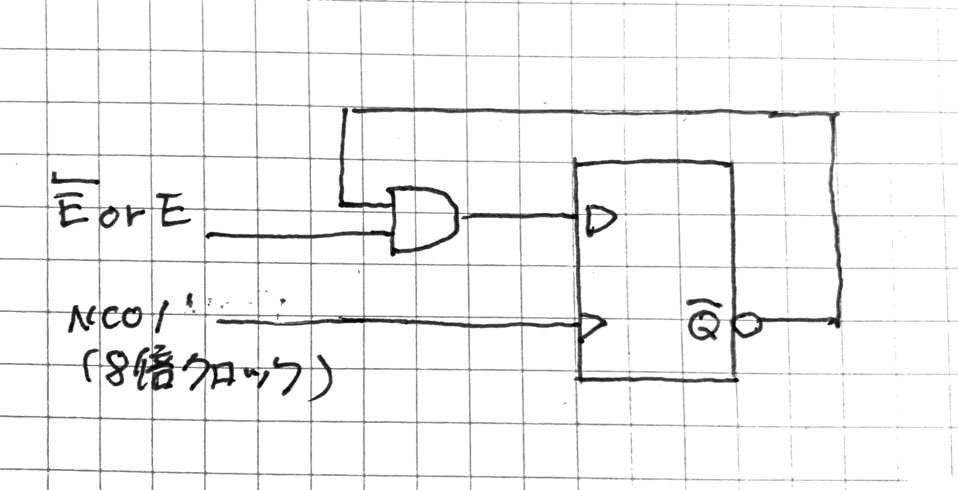 E̅ or E
NCO1
(8倍クロック)
D
Q̅